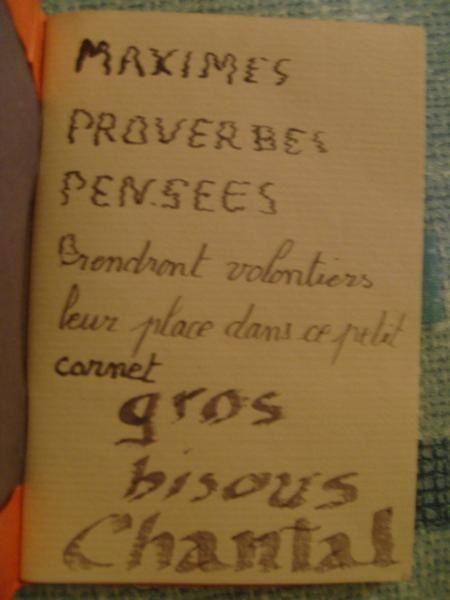 MAXIMES
PROVERBES
PENSEES
Prendront volontiers
leur place dans ce petit
carnet
gros
bisous
Chantal